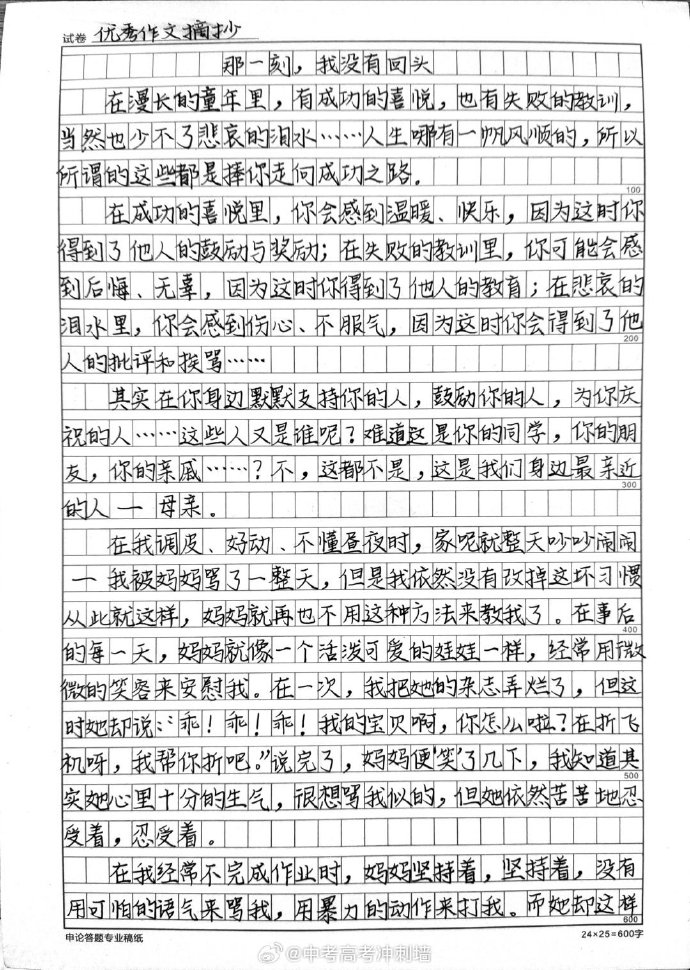 试卷 优秀作文摘抄
那一刻，我没有回头
在漫长的童年里，有成功的喜悦，也有失败的教训，
当然也少不了悲哀的泪水……人生哪有一帆风顺的，所以
所谓的这些都是择你走向成功之路.
100
在成功的喜悦里，你会感到温暖、快乐，因为这时你
得到了他人的鼓励与奖励；在失败的教训里，你可能会感
到后悔、无辜，因为这时你得到了他人的教育；在悲哀的
泪水里，你会感到伤心、不服气，因为这时你会得到了他
200
人的批评和挨骂……
其实在你身边默默支持你的人，鼓励你的人，为你庆
祝的人……这些人又是谁呢？难道这是你的同学，你的朋
友，你的亲戚……？不，这都不是，这是我们身边最亲近
300
的人一母亲。
在我调皮、好动、不懂昼夜时，家呢就整天吵吵闹闹
一我被妈妈骂了一整天，但是我依然没有改掉这坏习惯
从此就这样，妈妈就再也不用这种方法来教我了。在事后
400
的每一天，妈妈就像一个活泼可爱的娃娃一样，经常用微
微的笑容来安慰我。在一次，我把她的杂志弄烂了，但这
时她却说：：乖！乖！乖！我的宝贝啊，你怎么啦？在折飞
机呀，我帮你折吧。”说完了，妈妈便'笑'了几下，我知道其
500
实她心里十分的生气，很想骂我似的，但她依然苦苦地忍
受着，忍受着。
在我经常不完成作业时，妈妈坚持着，坚持着，没有
用可怕的语气来骂我，用暴力的动作来打我。而她却这样
600
申论答题专业稿纸 24×25=600字
@中考高考冲刺墙